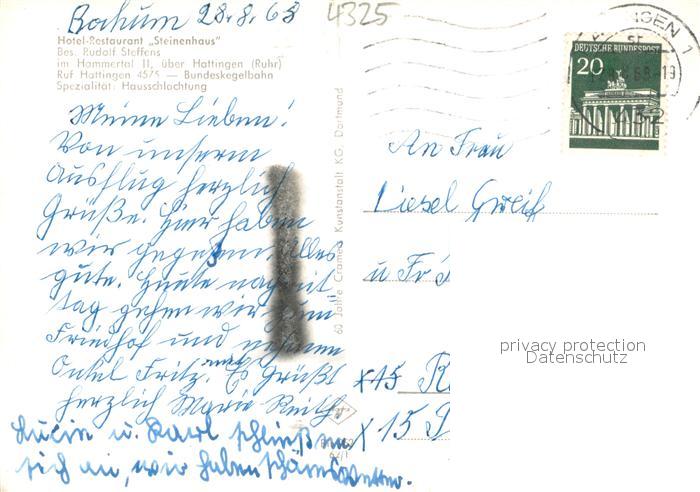 Bochum 28.8.68
4325
Hotel-Restaurant „Steinenhaus"
Bes. Rudolf Steffens
im Hammertal 11, über Hattingen (Ruhr)
Ruf Hattingen 4575 — Bundeskegelbahn
Spezialität: Hausschlachtung
Meine Lieben!
Von unserm
Ausflug herzlich
Grüße. Hier haben
wir gegessen. Alles
gute. Heute nachmit
tag gehen wir zum
Friedhof und nehmen
Onkel Fritz mit. Es Grüßt
herzlich Marie
Lucie u. Karl schließen
sich an, wir haben schönes Wetter.
60 Jahre Cramers Kunstanstalt KG. Dortmund
DEUTSCHE BUNDESPOST
20
An Frau
Liesel Greif
u
15
privacy protection
Datenschutz